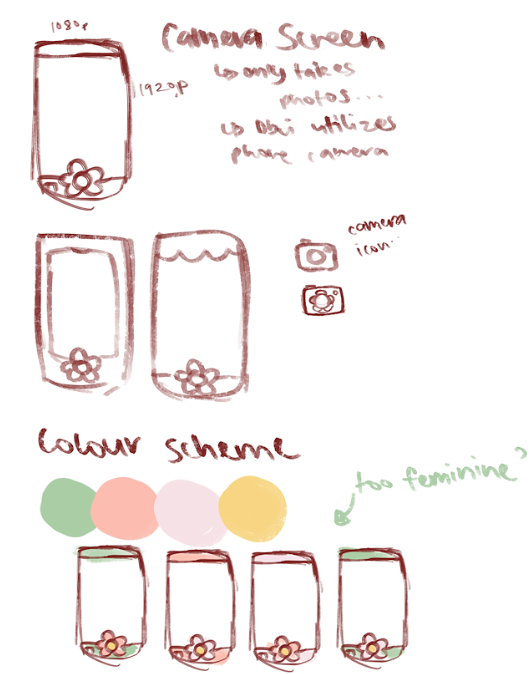 1080p
Camera Screen
1920p
↳ only takes
photos...
↳ utilizes
phone camera
camera
icon..
Colour scheme
too feminine?